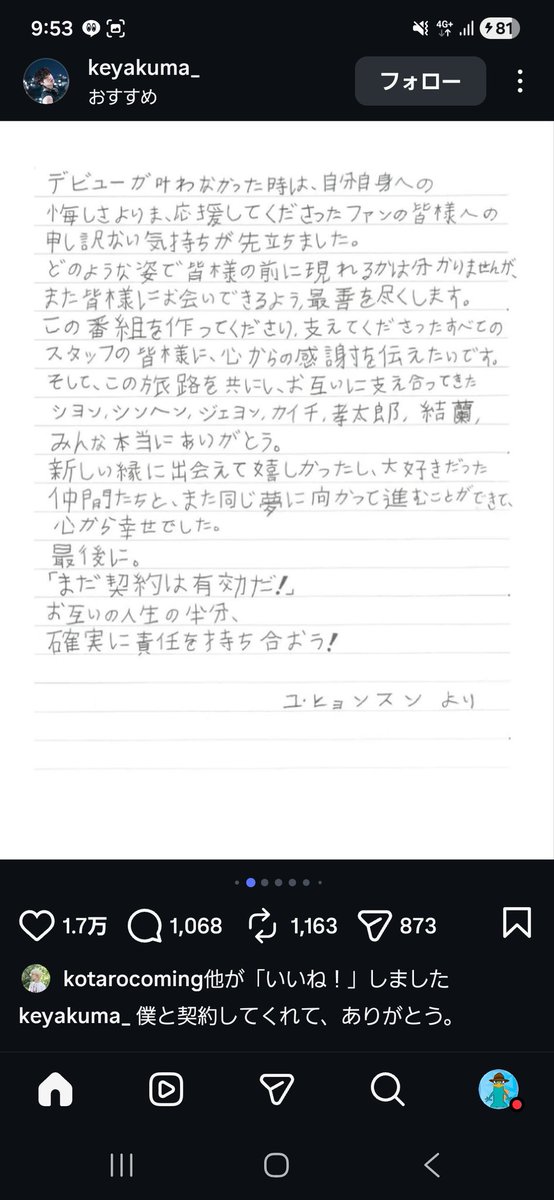 9:53
4G+
81
keyakuma_
おすすめ
フォロー
デビューが叶わなかった時は、自分自身への
悔しさよりま、応援してくださったファンの皆様への
申し訳ない気持ちが先立ちました。
どのような姿で皆様の前に現れるかは分かりませんが、
また皆様にお会いできるよう、最善を尽くします。
この番組を作ってくださり、支えてくださったすべての
スタッフの皆様に、心からの感謝を伝えたいです。
そして、この旅路を共にし、お互いに支え合ってきた
シヨン、シンヘン、ジェヨン、カイチ、孝太郎、結蘭、
みんな本当にありがとう。
新しい縁に出会えて嬉しかったし、大好きだった
仲間たちと、また同じ夢に向かって進むことができて、
心から幸せでした。
最後に。
「まだ契約は有効だ!」
お互いの人生の半分、
確実に責任を持ち合おう!
ユ・ヒョンスン より
1.7万
1,068
1,163
873
kotarocoming他が「いいね！」しました
keyakuma_ 僕と契約してくれて、ありがとう。